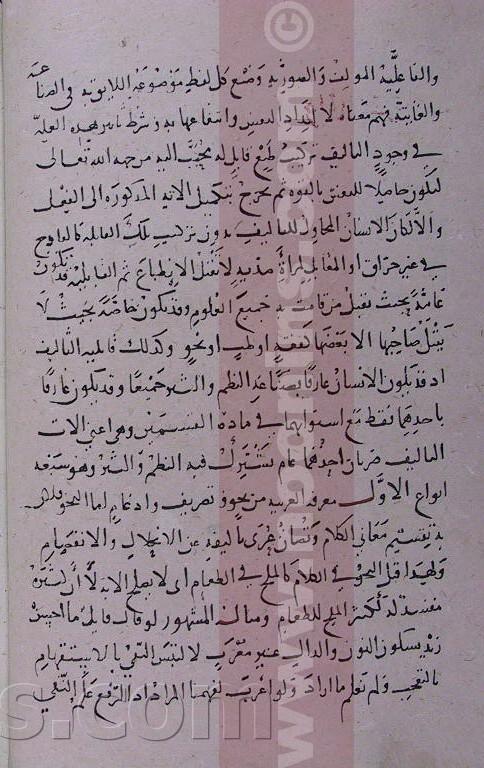 والفاعلية المولف والصورية وضع كل لفظ موضوعه اللايق به فى الصناعة
والغايية فهم معناه لامداد المعين وانتفاعها به وشرط تاثير هذه العلة
في وجود التاليف تركيب طبع قابل له محبب اليه من جهة الله تعالى
ليكون حاصلا للمعين بالقوة ثم يخرج بتكميل الاته المذكورة الى الفعل
والا لكان الانسان المحاول للتاليف بدون تركيب تلك القابلية كالوالج
في غير خراق او المقابل لمرآة صدية لا تقبل الانطباع ثم القابلية قد تكون
عامة بحيث تقبل من قامت به جميع العلوم وقد تكون خاصة بحيث لا
يقبل صاحبها الا بعضها كفقه او طب او نحو وكذلك قابلية التاليف
اذ قد يكون الانسان عارفا بصناعة النظم والنثر جميعا وقد يكون عارفا
باحدهما فقط مع استوايهما في مادة القسمين وهي اعني الات
التاليف ضربان احدهما عام يشترك فيه النظم والنثر وهو سبعة
انواع الاول معرفة العربية من نحو وتصريف وادغام اما النحو فلان
به تقسيم معاني الكلام وتصان عرى تاليفه عن الانحلال والانفصام
ولهذا قيل النحو في الكلام كالملح في الطعام اى لا يصلح الا به لا ان كثرته
مفسدة له ككثرة الملح للطعام ومثاله المشهور لو قال قايل ما احسن
زيد بسكون النون والدال غير معرب لالتبس النفي بالاستفهام
بالتعجب ولم تعلم ما اراد ولو اعرب لفهمنا المراد اذ الرفع علم النفي
www.mpararins.com